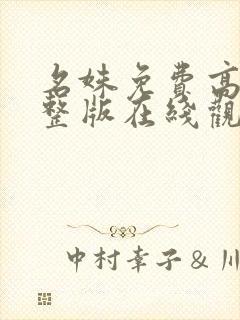 名妹免費高
整版在綫觀
中村幸子&川